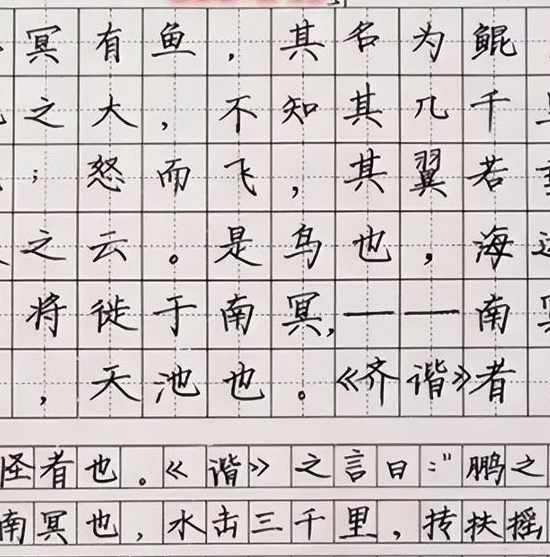 冥有鱼，其名为鲲
之大，不知其几千
；怒而飞，其翼若
之云。是鸟也，海运
将徙于南冥，——南冥
，天池也。《齐谐》者
怪者也。《谐》之言曰："鹏之
南冥也，水击三千里，抟扶摇